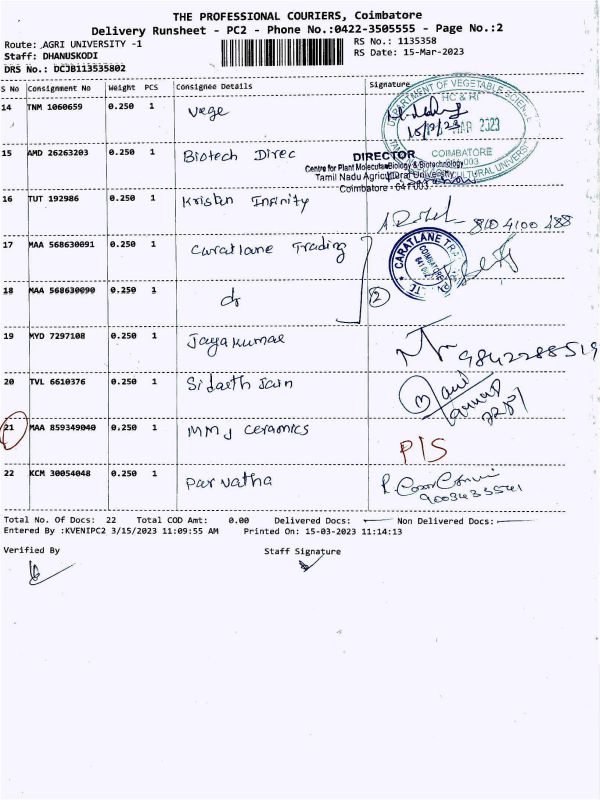 THE PROFESSIONAL COURIERS, Coimbatore
Delivery Runsheet - PC2 - Phone No.:0422-3505555 - Page No.:2
Route: AGRI UNIVERSITY -1 RS No.: 1135358
Staff: DHANUSKODI RS Date: 15-Mar-2023
DRS No.: DCJB113535802
S No Consignment No Weight PCS Consignee Details Signature
14 TNM 1060659 0.250 1 Vege
DEPARTMENT OF VEGETABLE SCIENCE
HC & RI
MAR 2023
COIMBATORE
15 AMD 26263203 0.250 1 Biotech Direc
DIRECTOR
Centre for Plant Molecular Biology & Biotechnology
Tamil Nadu Agricultural University
Coimbatore - 641 003
16 TUT 192986 0.250 1 Kristan Infinity
17 MAA 568630091 0.250 1 Caratlane Trading
CARATLANE TRA
COIMBATORE
18 MAA 568630090 0.250 1 do 2
19 MYD 7297108 0.250 1 Jayakumar 9842288519
20 TVL 6610376 0.250 1 Sidarth Jain
21 MAA 859349040 0.250 1 MMJ ceramics P/S
22 KCM 30054048 0.250 1 Parvatha
Total No. Of Docs: 22 Total COD Amt: 0.00 Delivered Docs: Non Delivered Docs:
Entered By :KVENIPC2 3/15/2023 11:09:55 AM Printed On: 15-03-2023 11:14:13
Verified By Staff Signature